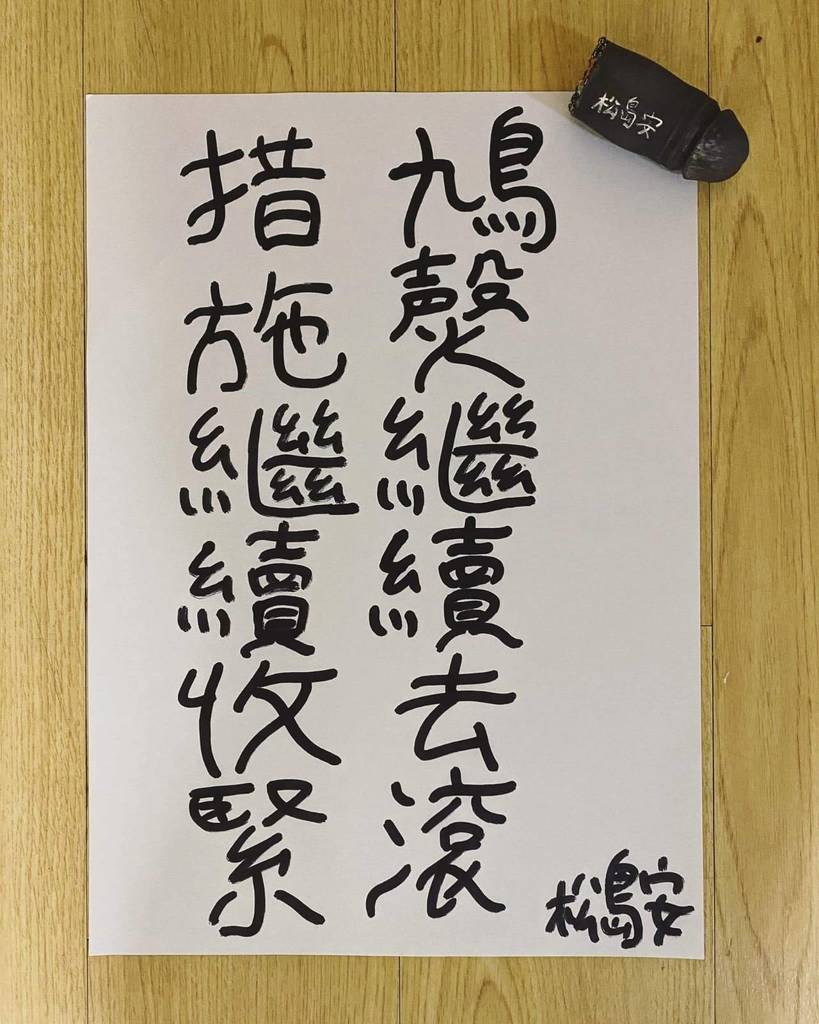 鳩㷫繼續去滾
措施繼續收緊
松島安
松島安